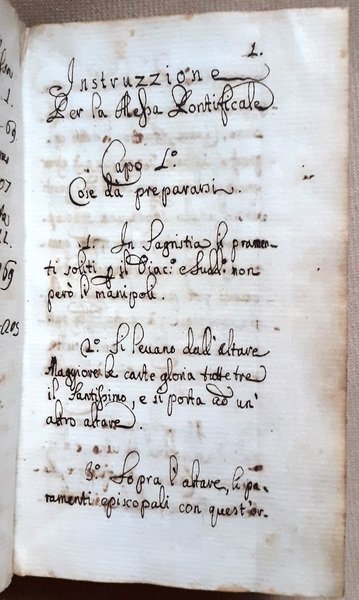 1.
Instruzzione
Per la Messa Pontificale
Capo 1.º
Cose da prepararsi.
1. In Sagristia li paramen-
ti soliti p il Diac.º e Sudd.º non
però li manipoli.
2.º Si levano dall'altare
Maggiore le carte gloria tutte tre
il Santissimo, e si porta ad un'
altro altare.
3.º Sopra l'altare, li pa-
ramenti episcopali con quest'or-
69
07
22
169